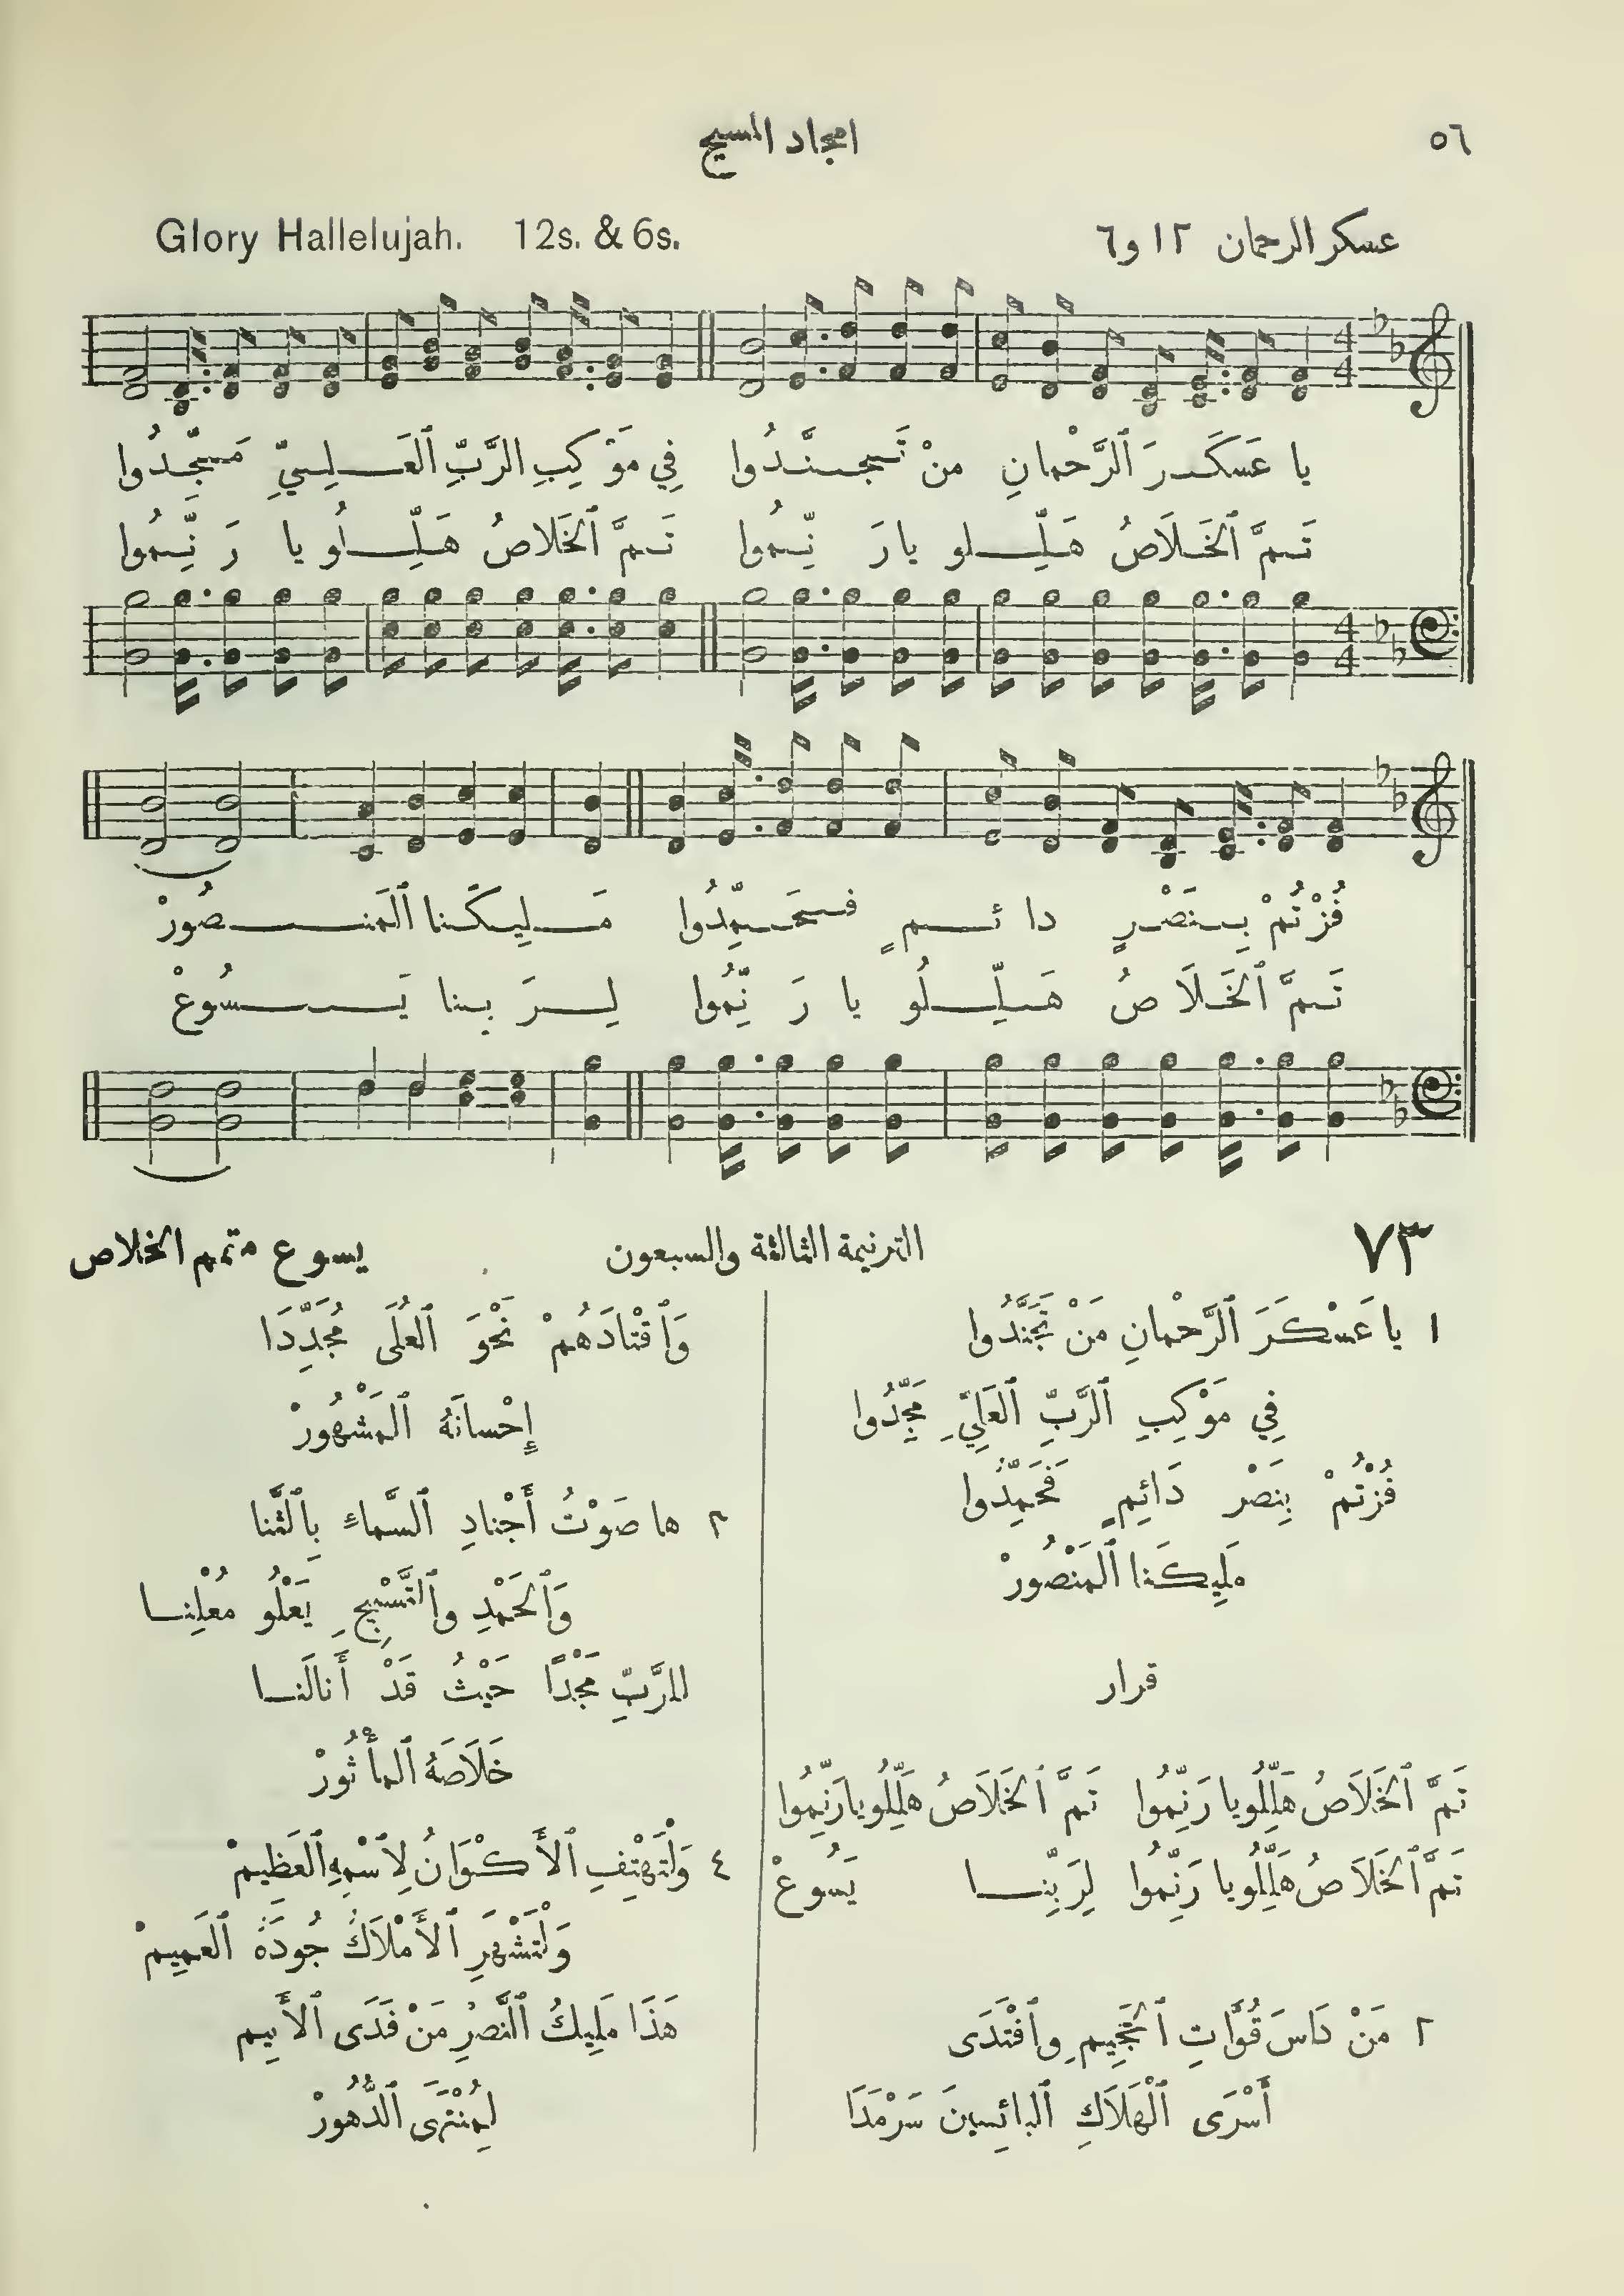 ٥٦
امجاد المسيح
عسكر الرحمان ١٢ و٦
Glory Hallelujah. 12s. & 6s.
4 4
يا عَسكَـرَ ٱلرَّحْمانِ منْ تَـجـنَّـدُوا في مَوْكِبِ الرَّبِّ ٱلعَـلِـيِّ مَـجِّـدُوا
تَـمَّ ٱلخَـلَاصُ هَـلِّـلو يا رَ نِّـمُوا تَـمَّ ٱلخَلاصُ هَـلِّـلُو يا رَ نِّـمُوا
4 4
فُزْتُمْ بِـنَصْـرٍ دا ئـمٍ فـحَـمِّـدُوا مَـلِيـكَـنا ٱلمَنـصُورْ
تَـمَّ ٱلخَـلَا صُ هَـلِّـلُو يا رَ نِّمُوا لِـرَ بِـنا يَـسُوعْ
٧٣ الترنيمة الثالثة والسبعون يسوع متمم الخلاص
١ يا عَسْكَرَ ٱلرَّحْمانِ مَنْ تَجَنَّدُوا
فِي مَوْكِبِ ٱلرَّبِّ ٱلعَلِيِّ مَجِّدُوا
فُزْتُمْ بِنَصْرٍ دَائِمٍ فَحَمِّدُوا
مَلِيكَنا ٱلمَنْصُورْ
قرار
تَمَّ ٱلخَلَاصُ هَلِّلُويا رَنِّمُوا تَمَّ ٱلخَلَاصُ هَلِّلُويا رَنِّمُوا
تَمَّ ٱلخَلَاصُ هَلِّلُويا رَنِّمُوا لِرَبِّنـا يَسُوعْ
٢ مَنْ دَاسَ قُوَّاتِ ٱلجَحِيمِ وٱفْتَدَى
أَسْرَى ٱلْهَلَاكِ ٱلبائِسِينَ سَرْمَدَا
وَٱقْتادَهُمْ نَحْوَ ٱلعُلَى مُجَدِّدَا
إِحْسانَهُ ٱلمَشْهُورْ
٣ ها صَوْتُ أَجْنادِ ٱلسَّماءِ بِٱلثَّنا
وَٱلحَمْدِ وٱلتَّسْبِيحِ يَعْلُو مُعْلِنـا
للرَّبِّ مَجْدًا حَيْثُ قَدْ أَنالَنـا
خَلَاصَهُ ٱلمأْثُورْ
٤ وَلْتَهْتِفِ ٱلأَكْوَانُ لِٱسْمِهِ ٱلعَظِيمْ
وَلْتَشْهَرِ ٱلأَمْلَاكُ جُودَهُ ٱلعَمِيمْ
هَذَا مَلِيكُ ٱلنَّصْرِ مَنْ فَدَى ٱلأَثِيم
لِمُنْتَهَى ٱلدُّهُورْ